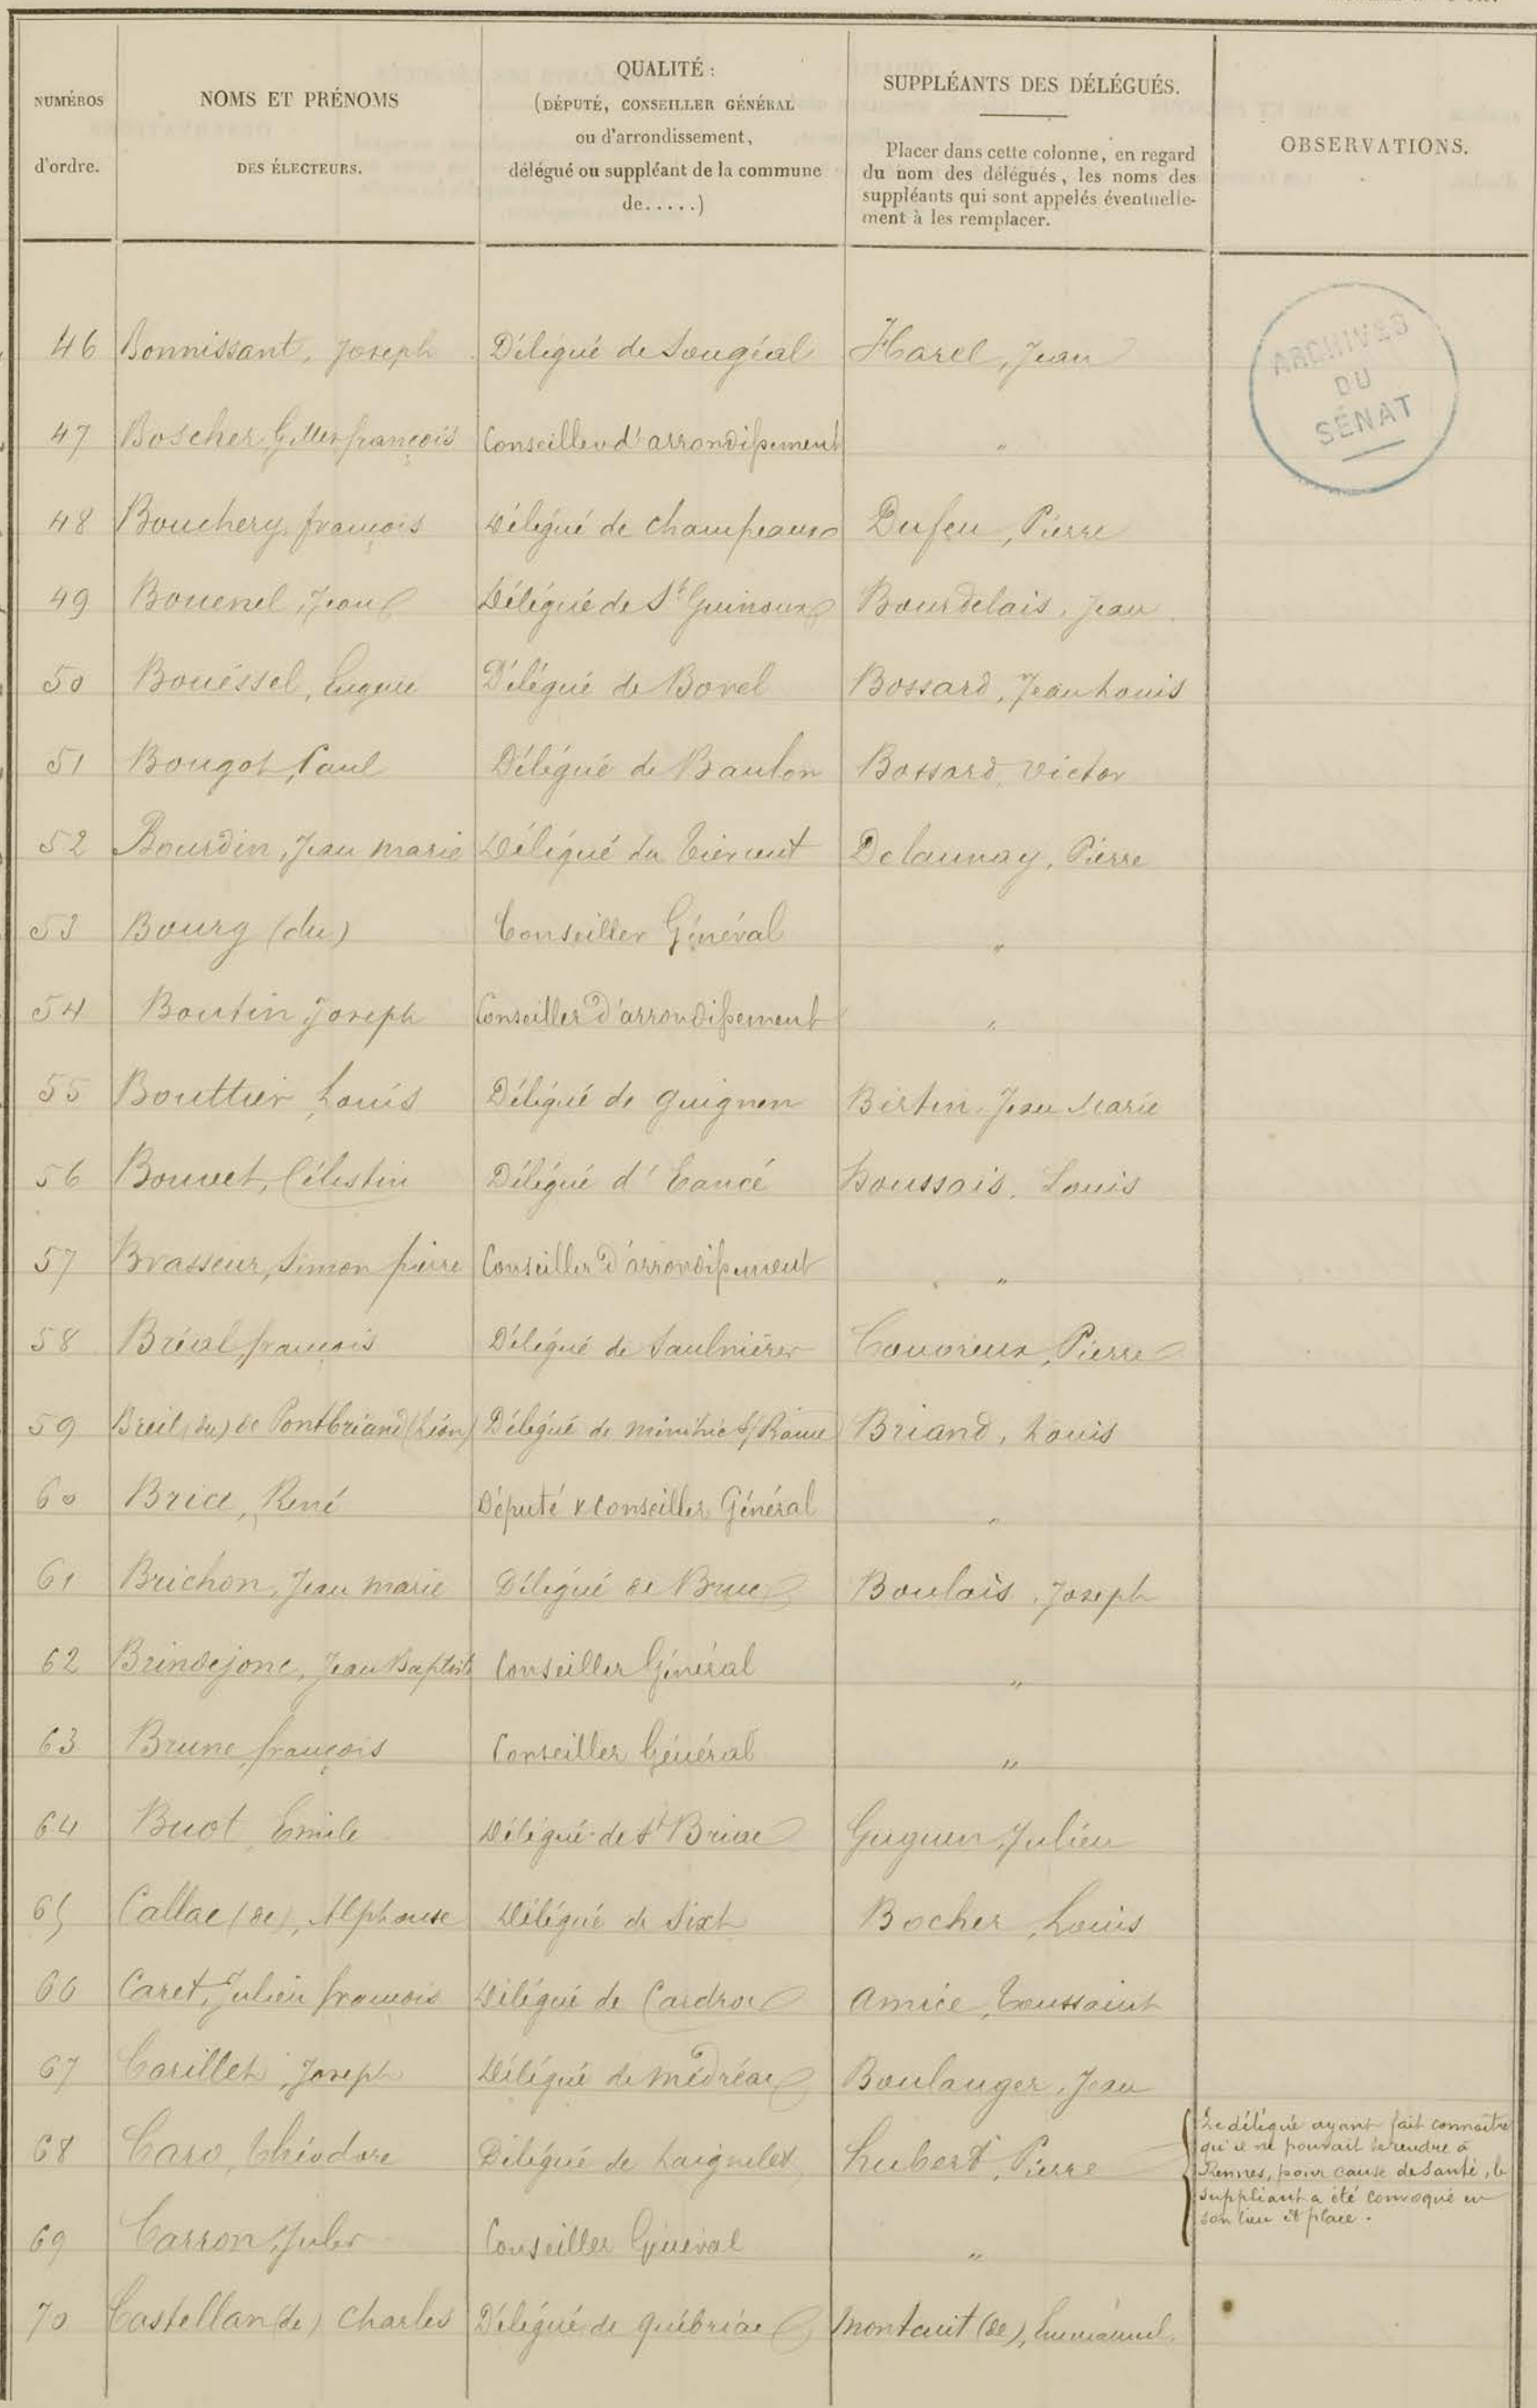 NUMÉROS
d'ordre.
NOMS ET PRÉNOMS
DES ÉLECTEURS.
QUALITÉ :
(DÉPUTÉ, CONSEILLER GÉNÉRAL
ou d'arrondissement,
délégué ou suppléant de la commune
de.....)
SUPPLÉANTS DES DÉLÉGUÉS.
Placer dans cette colonne, en regard
du nom des délégués, les noms des
suppléants qui sont appelés éventuelle-
ment à les remplacer.
OBSERVATIONS.
ARCHIVES
DU
SÉNAT
46 Bonnissant, Joseph Délégué de Sougéal Harel, Jean
47 Boscher, françois Conseiller d'arrondissement "
48 Bouchery, françois Délégué de Champeaux Dufeu, Pierre
49 Bouenel, Jean Délégué de St Guinoux Bourdelais, Jean
50 Bouëssel, Eugene Délégué de Bovel Bossard, Jean Louis
51 Bougot, Paul Délégué de Baulon Bossard, Victor
52 Bourdin, Jean Marie Délégué du Tiercent Delaunay, Pierre
53 Bourg (du) Conseiller Général "
54 Boutin, Joseph Conseiller d'arrondissement "
55 Bouttier, Louis Délégué de guignen Bertin, Jean Marie
56 Bouvet, Célestin Délégué d'Eancé Houssais, Louis
57 Brasseur, Simon pierre Conseiller d'arrondissement "
58 Bréal françois Délégué de Saulnières Couvreux, Pierre
59 Breil (du) de Pontbriand (Léon) Délégué de Minihic s/ Rance Briand, Louis
60 Brice, René Député & Conseiller Général "
61 Brichon, Jean Marie Délégué de Bruc Boulais, Joseph
62 Brindejonc, Jean Baptiste Conseiller Général "
63 Brune, françois Conseiller Général "
64 Buot, Emile Délégué de St Briac Guguen, Julien
65 Callac (de), Alphonse Délégué de Sixt Bocher, Louis
66 Caret, Julien françois Délégué de Cardroc Amice, Toussaint
67 Carillet, Joseph Délégué de Médréac Boulanger, Jean
68 Caro, Théodore Délégué de Laignelet Hubert, Pierre
Le délégué ayant fait connaître
qu'il ne pouvait se rendre à
Rennes, pour cause de santé, le
suppléant a été convoqué en
son lieu et place.
69 Carron, Jules Conseiller Général "
70 Castellan (de) Charles Délégué de québriac Montcuit (de), Emmanuel